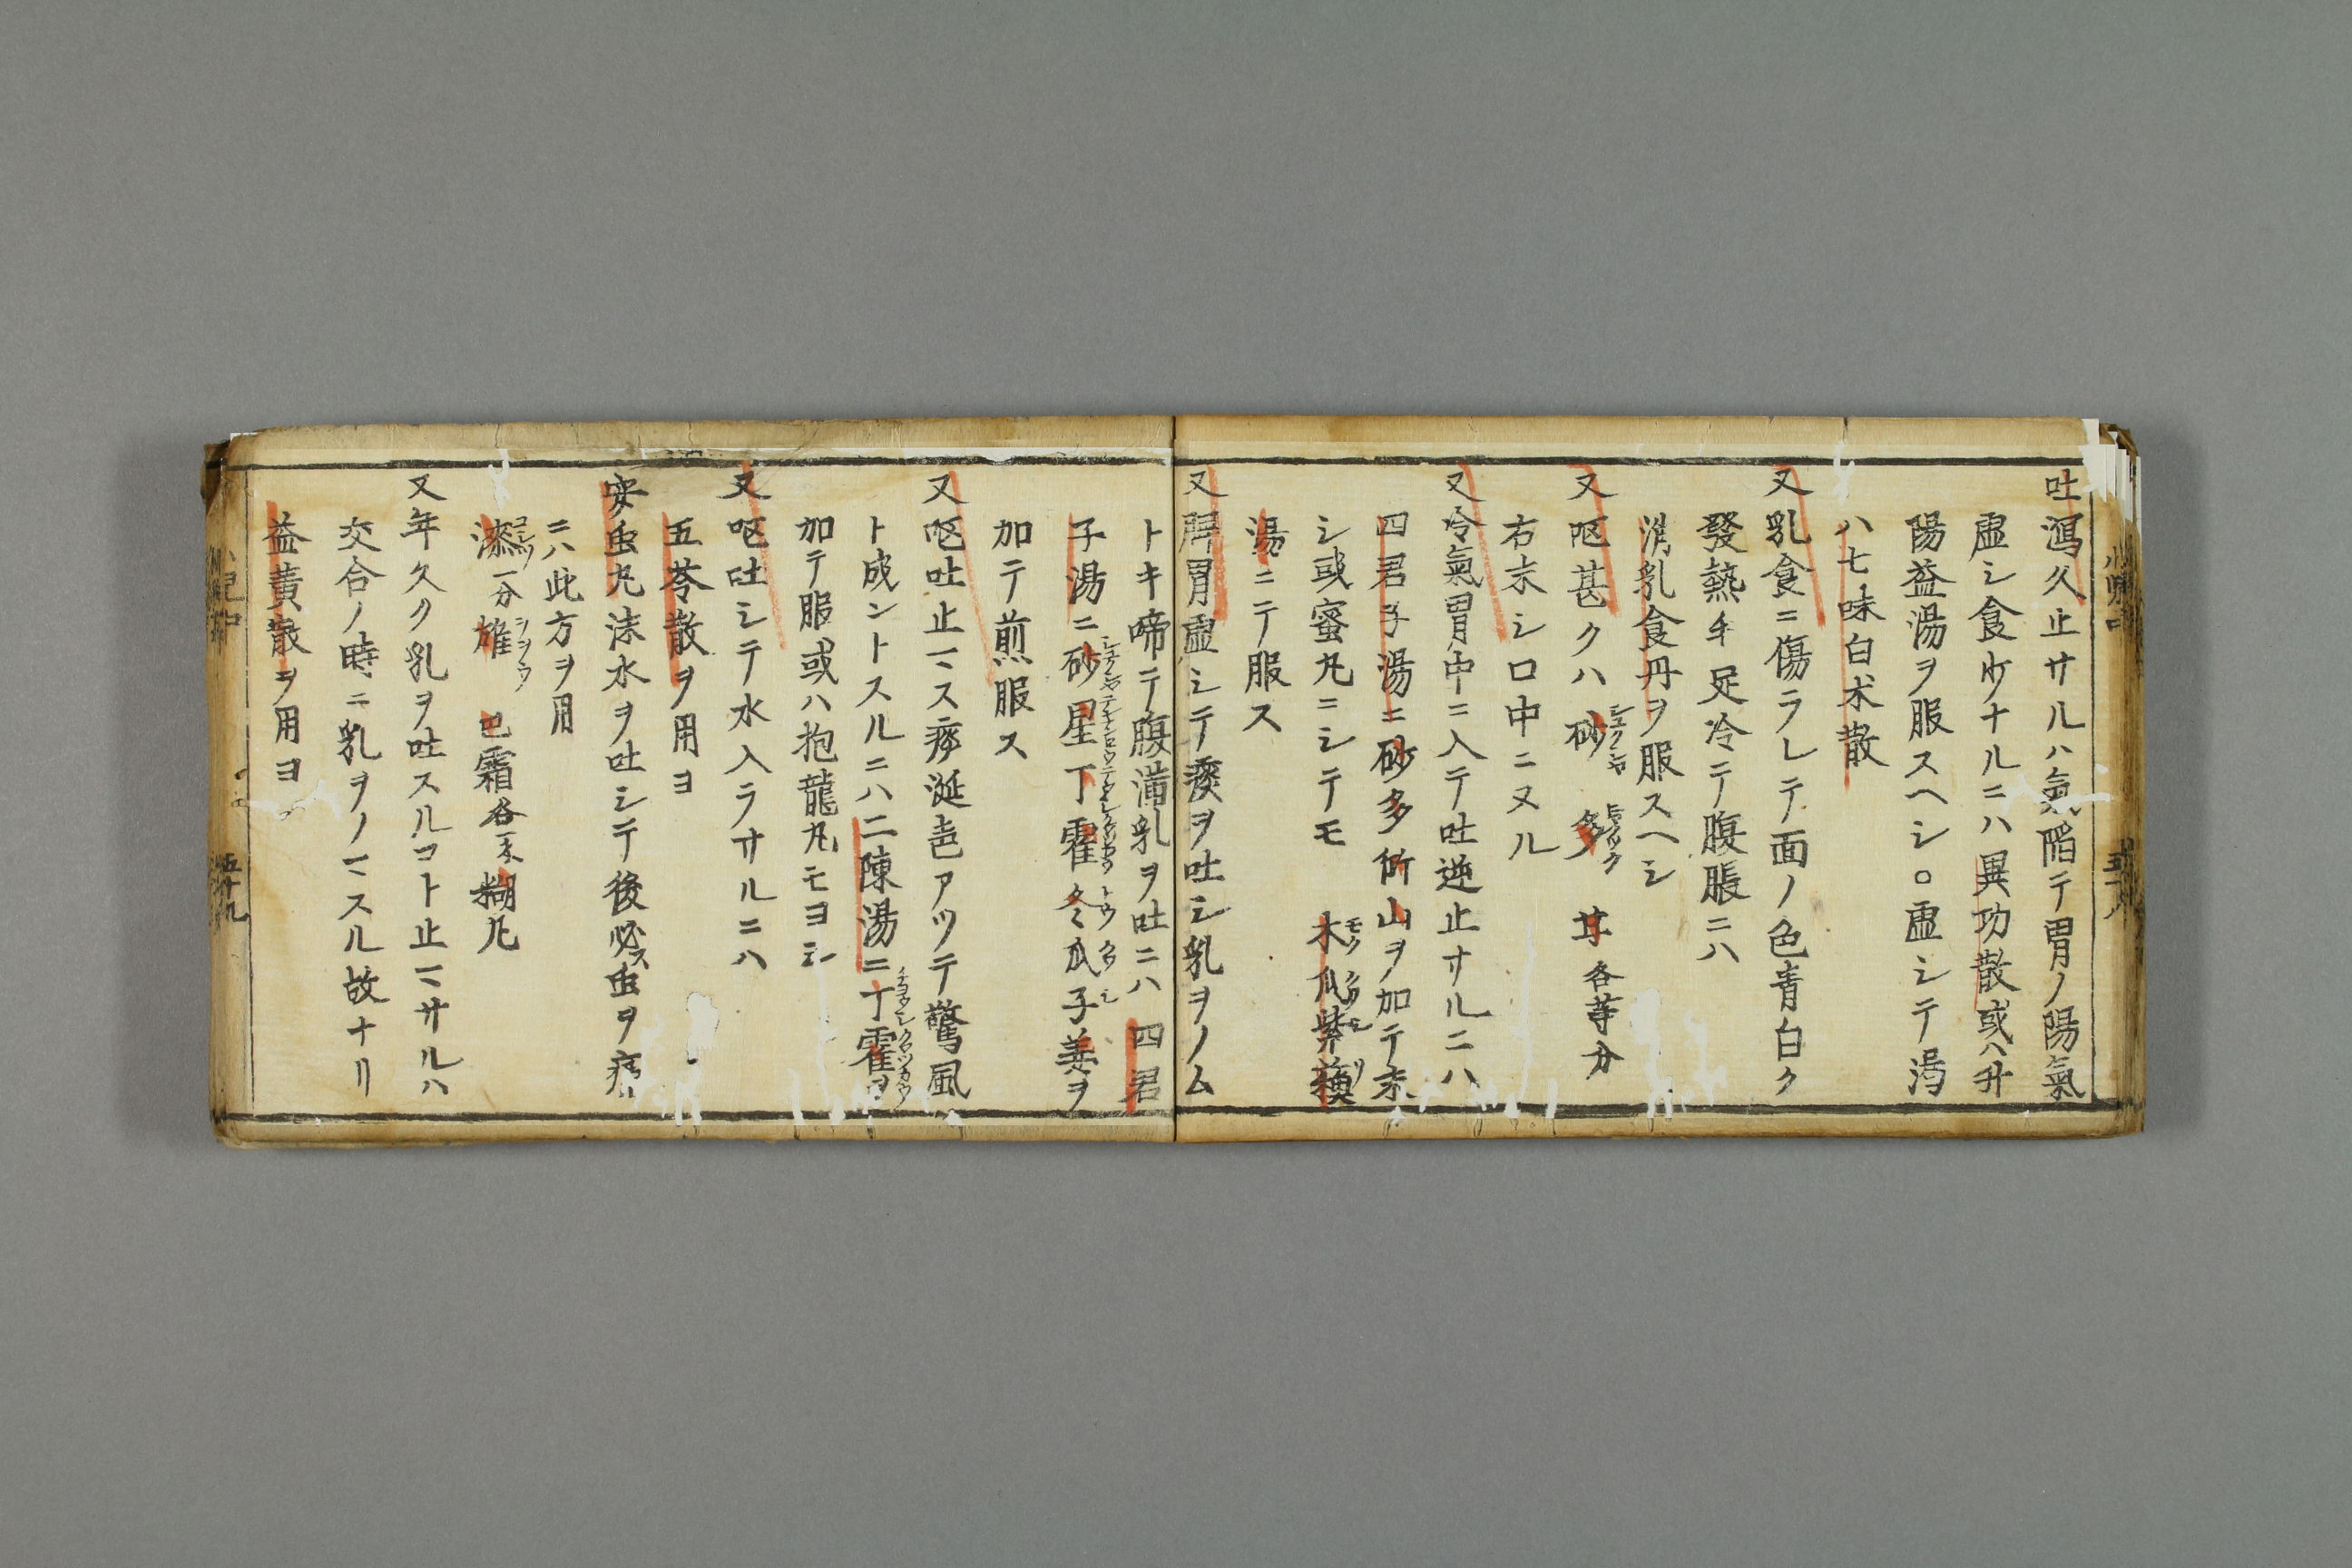 吐瀉久止サルハ氣陷テ胃ノ陽氣
虚シ食少ナルニハ異功散或ハ升
陽益湯ヲ服スヘシ○虚シテ渇
ハ七味白术散
又乳食ニ傷ラレテ面ノ色青白ク
發熱手足冷テ腹脹ニハ
消乳食丹ヲ服スヘシ
又呕甚クハ砂 多 甘各等分
右末シ口中ニヌル
又冷氣胃中ニ入テ吐逆止サルニハ
四君子湯ニ砂多 山ヲ加テ末
シ或蜜丸ニシテモ 木瓜紫
湯ニテ服ス
又脾胃虚シテ痰ヲ吐シ乳ヲノム
トキ啼テ腹満乳ヲ吐ニハ 四君
子湯ニ砂星丁霍冬瓜子姜ヲ
加テ煎服ス
又呕吐止マス痰涎アツテ驚風
ト成ントスルニハ二陳湯ニ丁霍ヲ
加テ服或ハ抱龍丸モヨシ
又呕吐シテ水入ラサルニハ
五苓散ヲ用ヨ
安虫丸沫水ヲ吐シテ後必ス虫ヲ痛
ニハ此方ヲ用
漆一分 雄 巴霜各末糊丸
又年久ク乳ヲ吐スルコト止マサルハ
交合ノ時ニ乳ヲノマスル故ナリ
益黄散ヲ用ヨ
五十九